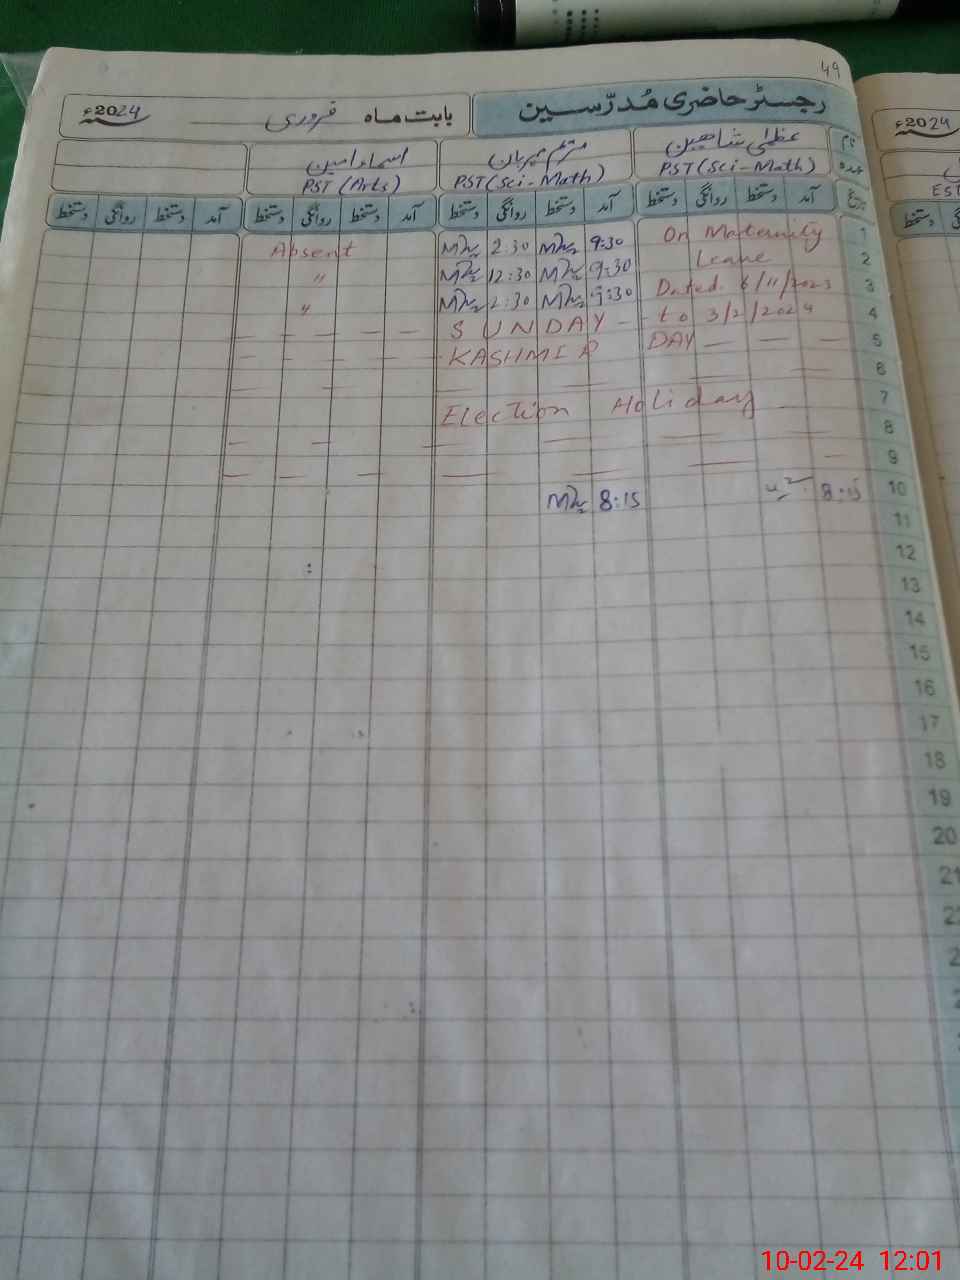 49
رجسٹر حاضری مُدرّسین
بابت ماہ فروری 2024ء
2024ء
نام عظمیٰ شاھین مریم مہربان اسماء امین
عہدہ PST (Sci-Math) PST (Sci-Math) PST (Arts)
EST
تاریخ آمد دستخط روانگی دستخط آمد دستخط روانگی دستخط آمد دستخط روانگی دستخط آمد دستخط روانگی دستخط
دستخط
1 On Maternity 9:30 2:30 Absent
2 Leave 9:30 12:30 "
3 Dated. 6/11/2023 9:30 2:30 "
4 to 3/2/2024 SUNDAY
5 KASHMIR DAY
6
7 Election Holiday
8
9
10 8:15 8:15
11
12
13
14
15
16
17
18
19
20
21
10-02-24 12:01